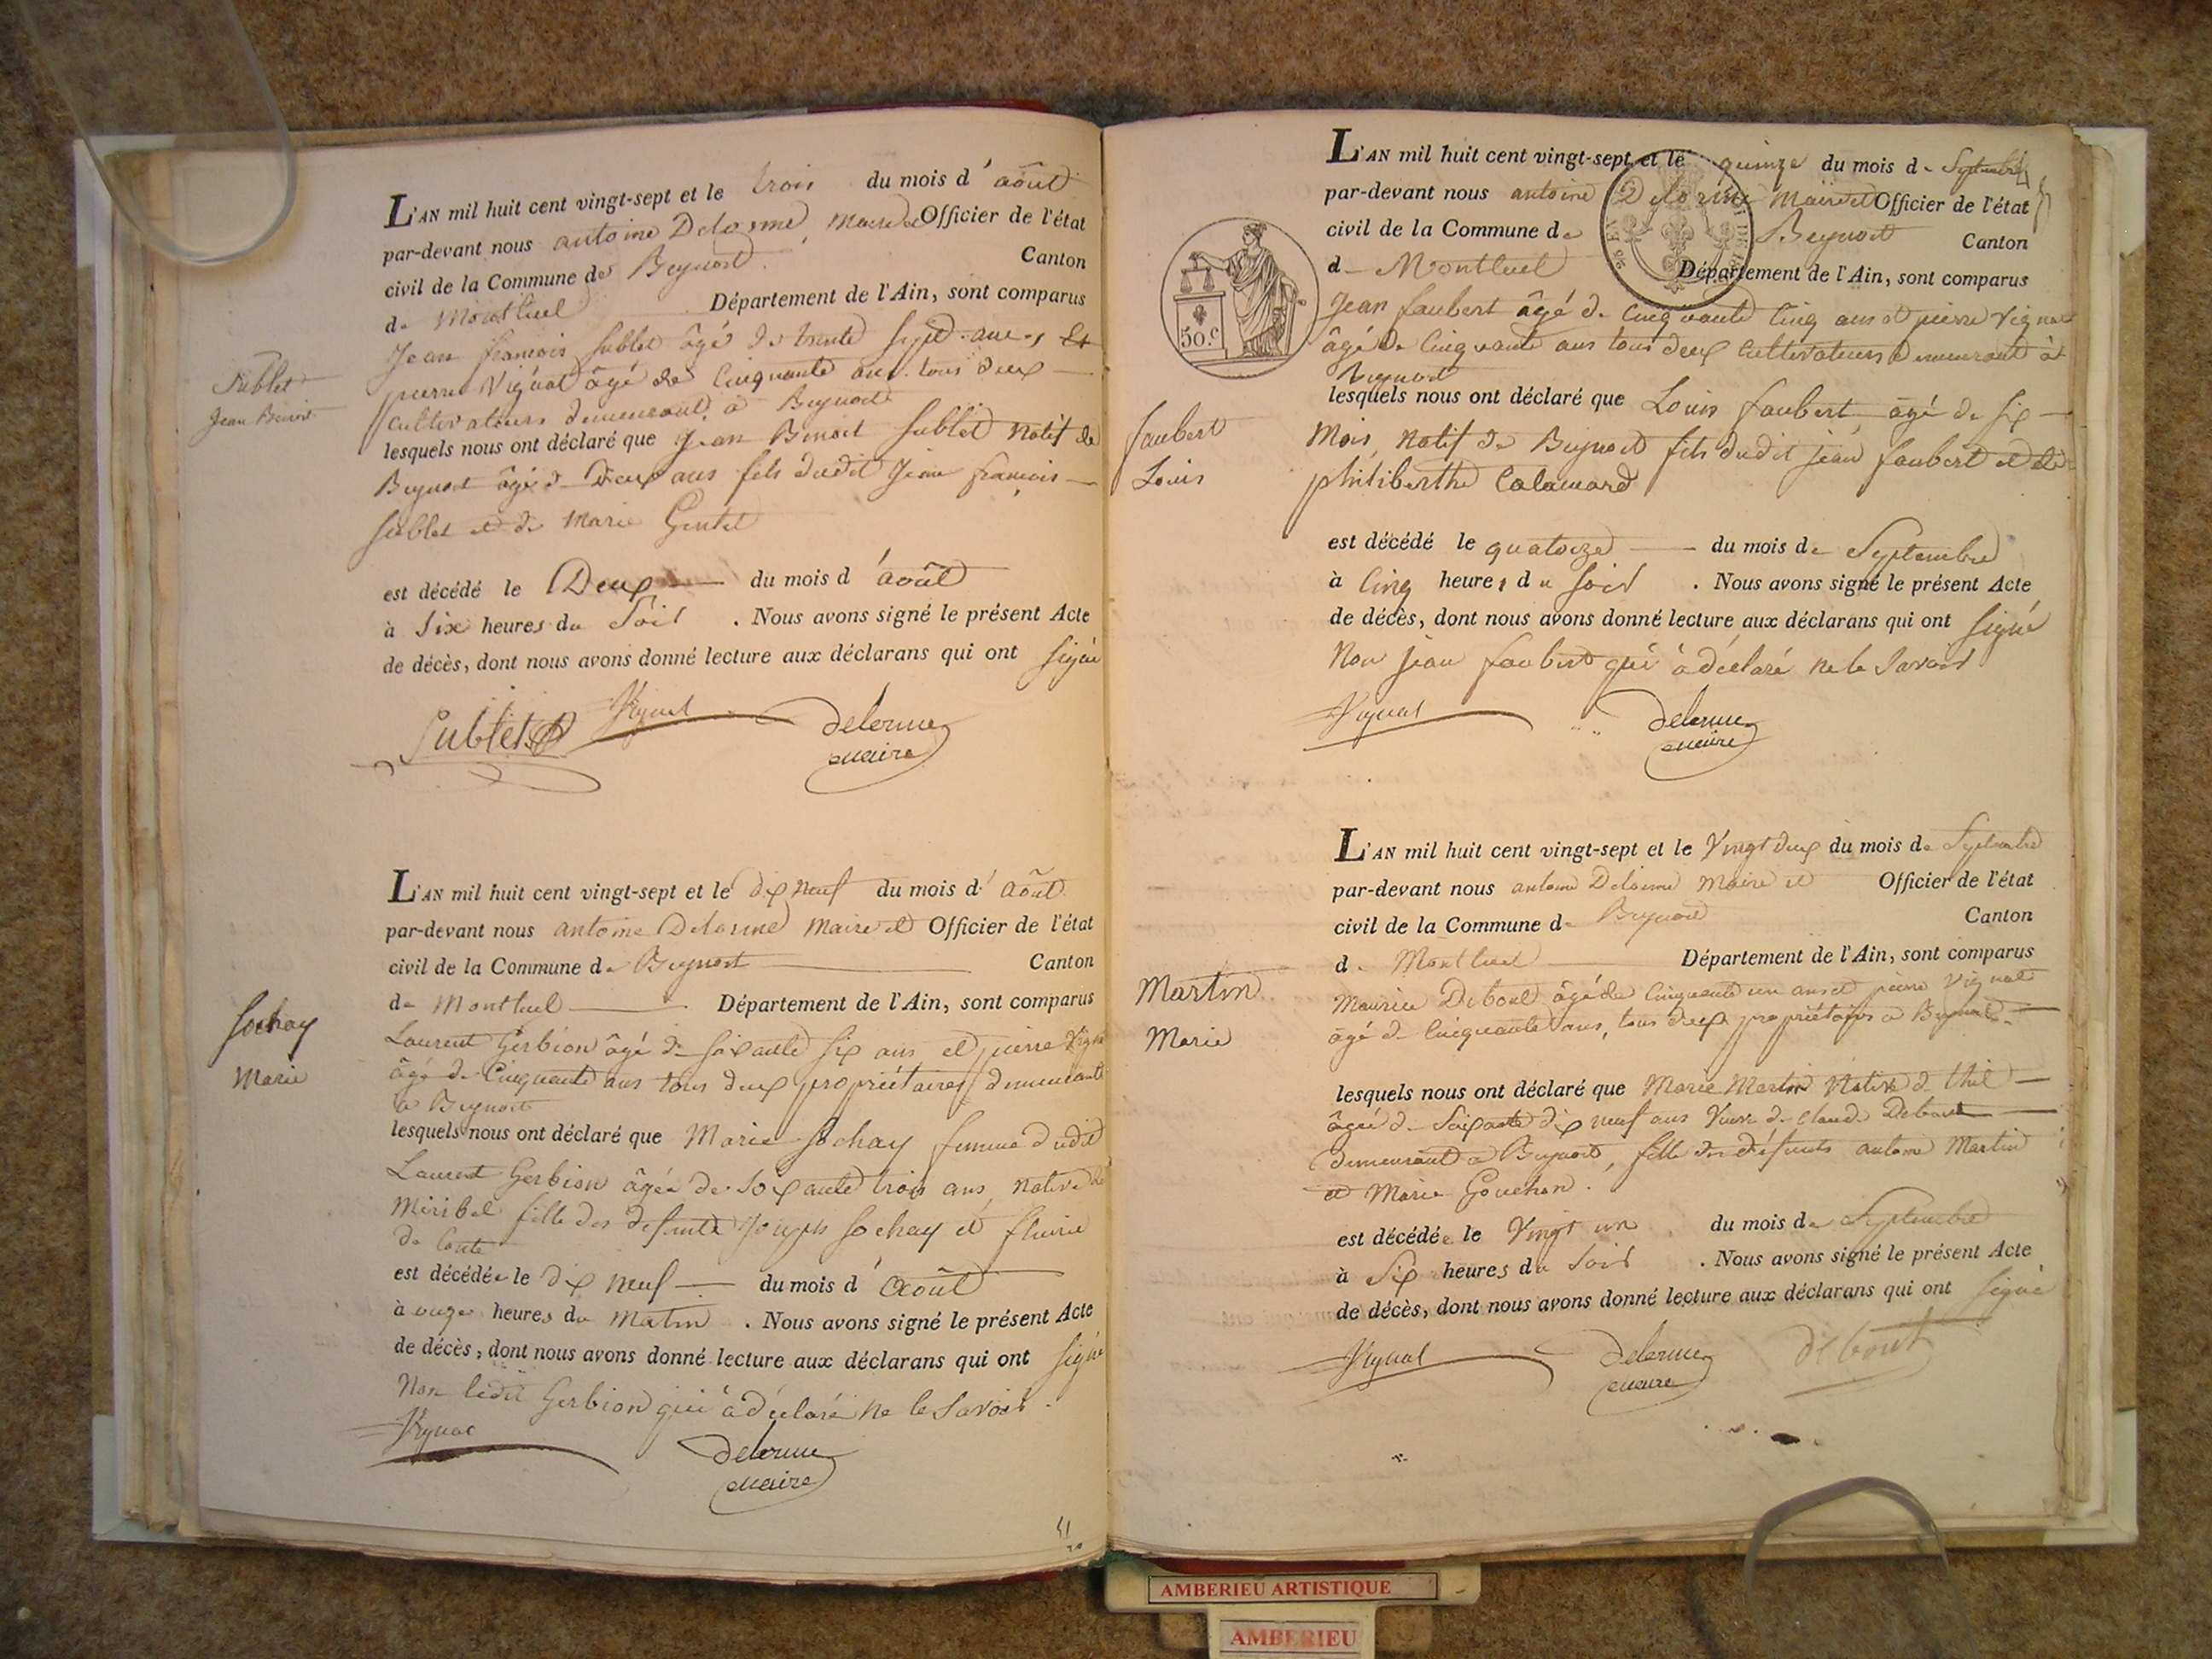 L'AN mil huit cent vingt-sept et le trois du mois d'août
par-devant nous antoine Delorme, Maire et Officier de l'état
civil de la Commune de Beynost Canton
de Montluel Département de l'Ain, sont comparus
Jean françois Sublet âgé de trente sept ans, et
pierre Vignat âgé de Cinquante ans tous deux
cultivateurs demeurant à Beynost
lesquels nous ont déclaré que Jean Benoit Sublet Natif de
Beynost âgé de Deux ans fils dudit Jean françois
Sublet et de Marie Gentet
est décédé le Deux du mois d'août
à Six heures du Soir . Nous avons signé le présent Acte
de décès, dont nous avons donné lecture aux déclarans qui ont signé
Sublet Vignat Delorme
maire
Sublet
Jean Benoit
L'AN mil huit cent vingt-sept et le dix neuf du mois d'août
par-devant nous antoine Delorme Maire et Officier de l'état
civil de la Commune de Beynost Canton
de Montluel Département de l'Ain, sont comparus
Laurent Gerbion âgé de soixante six ans et pierre Vignat
âgé de Cinquante ans tous deux propriétaires demeurant
à Beynost
lesquels nous ont déclaré que Marie Sochay femme dudit
Laurent Gerbion âgée de soixante trois ans, native de
Miribel fille des defunts Joseph Sochay et
est décédée le dix neuf du mois d'août
à onze heures du Matin . Nous avons signé le présent Acte
de décès, dont nous avons donné lecture aux déclarans qui ont signé
Non ledit Gerbion qui à déclaré ne le Savoir.
Vignat Delorme
maire
Sochay
Marie
L'AN mil huit cent vingt-sept et le quinze du mois de Septembre
par-devant nous antoine Delorme Maire et Officier de l'état
civil de la Commune de Beynost Canton
de Montluel Département de l'Ain, sont comparus
Jean faubert âgé de Cinquante Cinq ans et pierre Vignat
âgé de Cinquante ans tous deux Cultivateurs demeurant à
Beynost
lesquels nous ont déclaré que Louis faubert, âgé de six
Mois, Natif de Beynost fils dudit jean faubert et de
philiberthe Calamard
est décédé le quatorze du mois de Septembre
à Cinq heures du soir . Nous avons signé le présent Acte
de décès, dont nous avons donné lecture aux déclarans qui ont signé
Non jean faubert qui à déclaré ne le Savoir
Vignat Delorme
maire
50.c
faubert
Louis
L'AN mil huit cent vingt-sept et le Vingt deux du mois de Septembre
par-devant nous antoine Delorme Maire et Officier de l'état
civil de la Commune de Beynost Canton
de Montluel Département de l'Ain, sont comparus
Maurice Debout âgé de Cinquante un ans et pierre Vignat
âgé de Cinquante ans, tous deux propriétaires à Beynost
lesquels nous ont déclaré que Marie Martin Native de thil
âgée de Soixante dix neuf ans Veuve de claude Debout
demeurant à Beynost, fille des défunts antoine Martin
et Marie
est décédée le Vingt un du mois de Septembre
à Six heures du Soir . Nous avons signé le présent Acte
de décès, dont nous avons donné lecture aux déclarans qui ont signé
Vignat Delorme debout
maire
Martin
Marie
AMBERIEU ARTISTIQUE
AMBERIEU